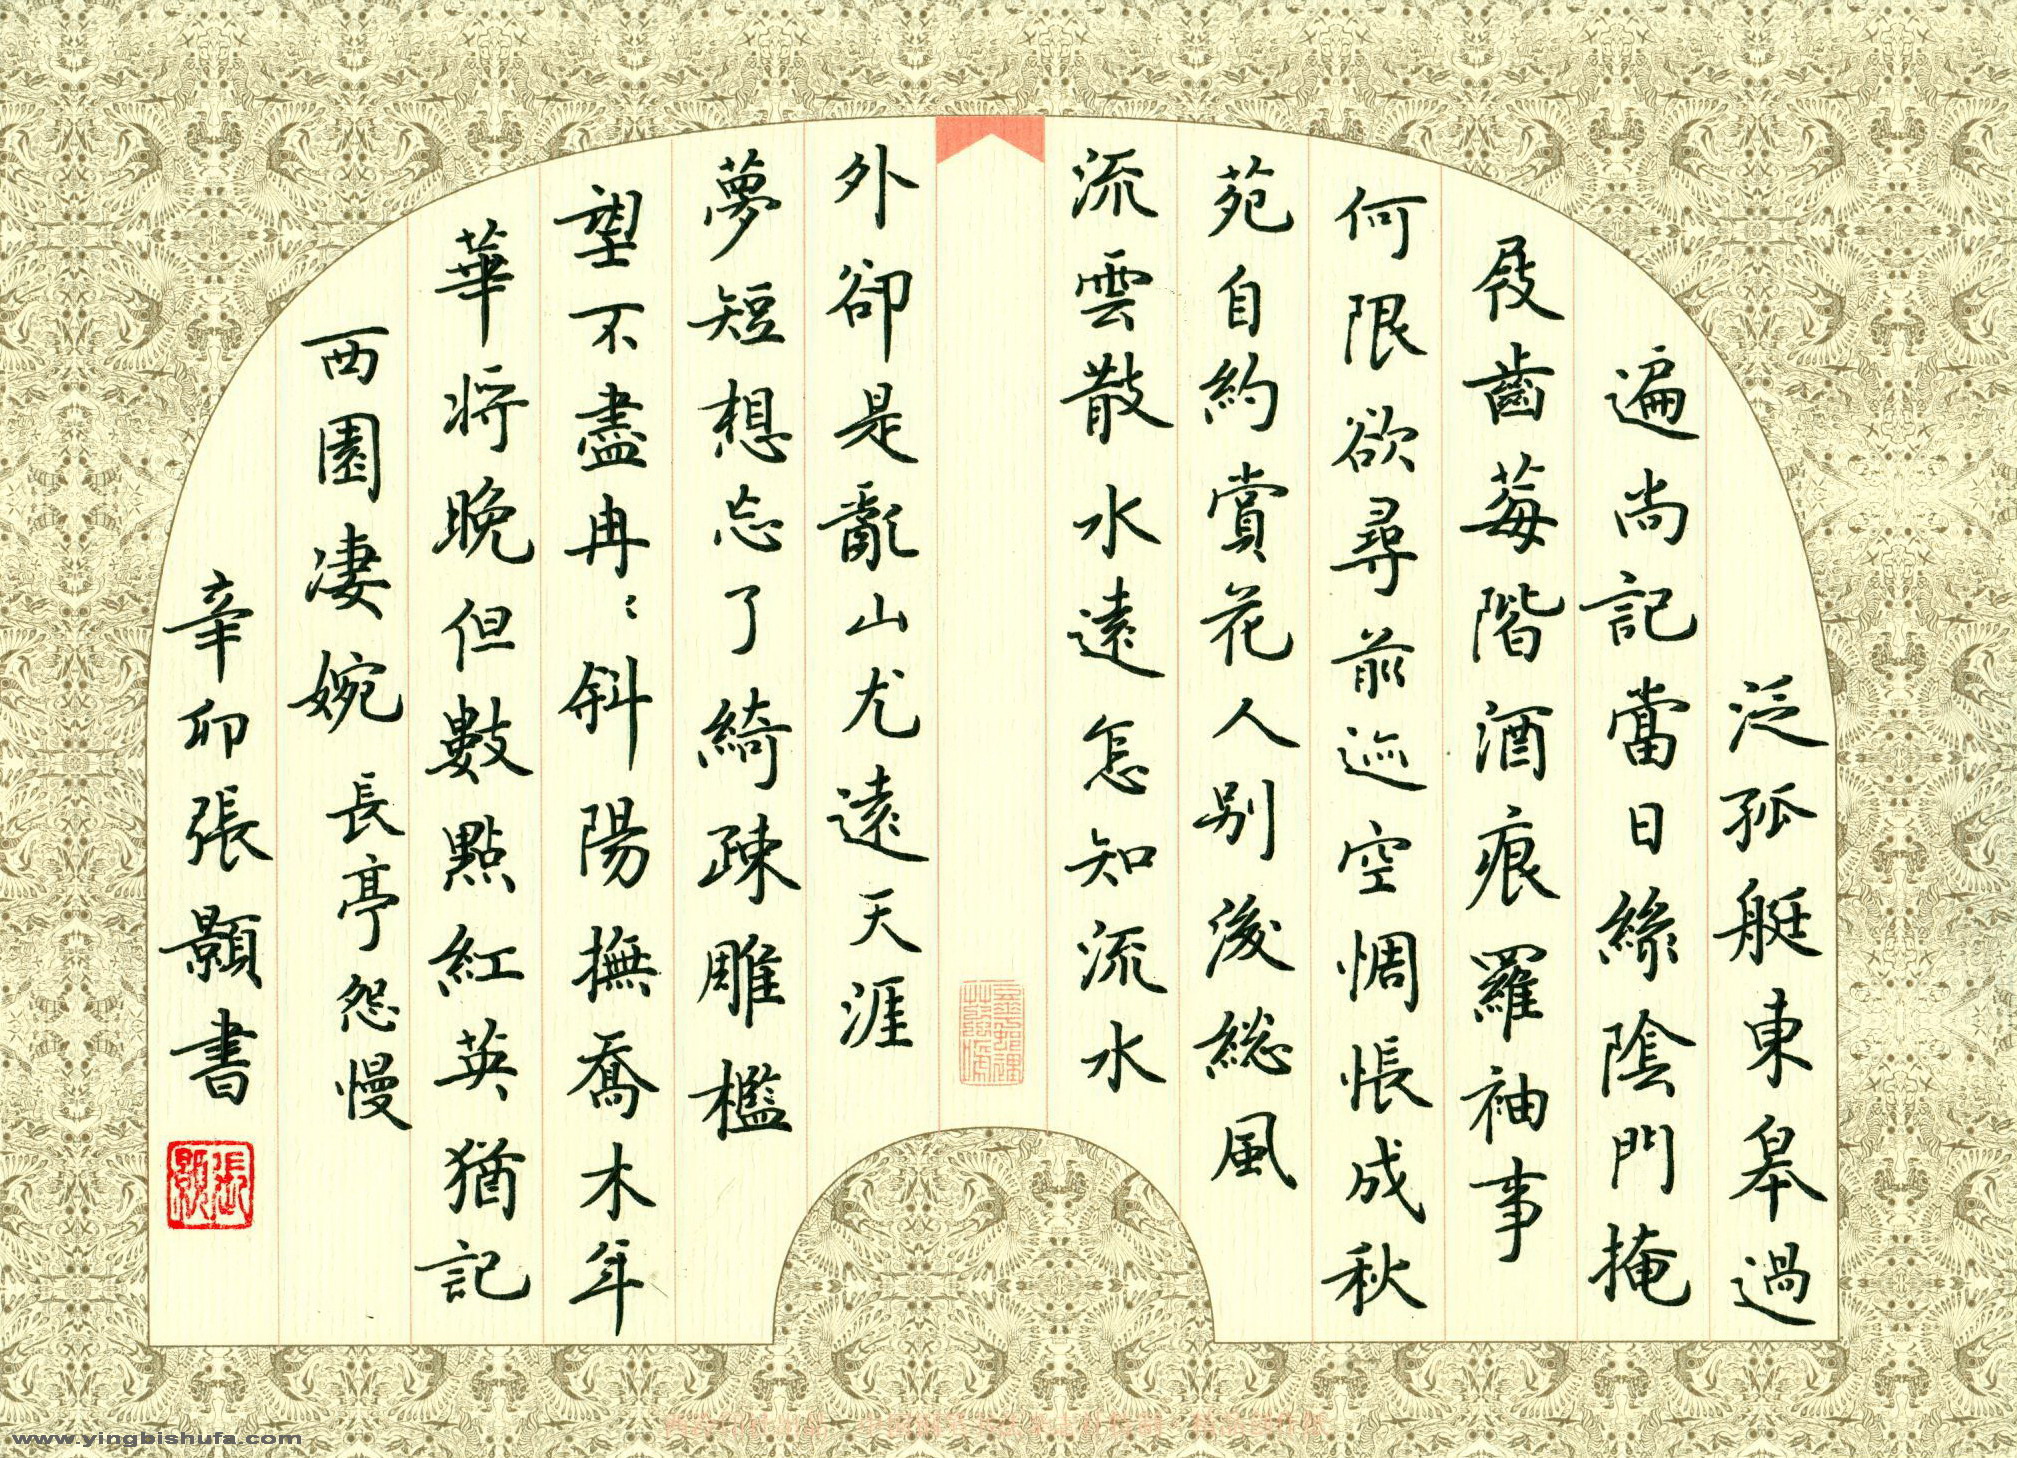 泛孤艇東皋過
遍尚記當日綠陰門掩
屐齒莓階酒痕羅袖事
何限欲尋前迹空惆悵成秋
苑自約賞花人别後総風
流雲散水遠怎知流水
外卻是亂山尤遠天涯
夢短想忘了綺疎雕檻
望不盡冉〻斜陽撫喬木年
華將晚但數點紅英猶記
西園凄婉 長亭怨慢
辛卯張顥書
張顥
www.yingbishufa.com